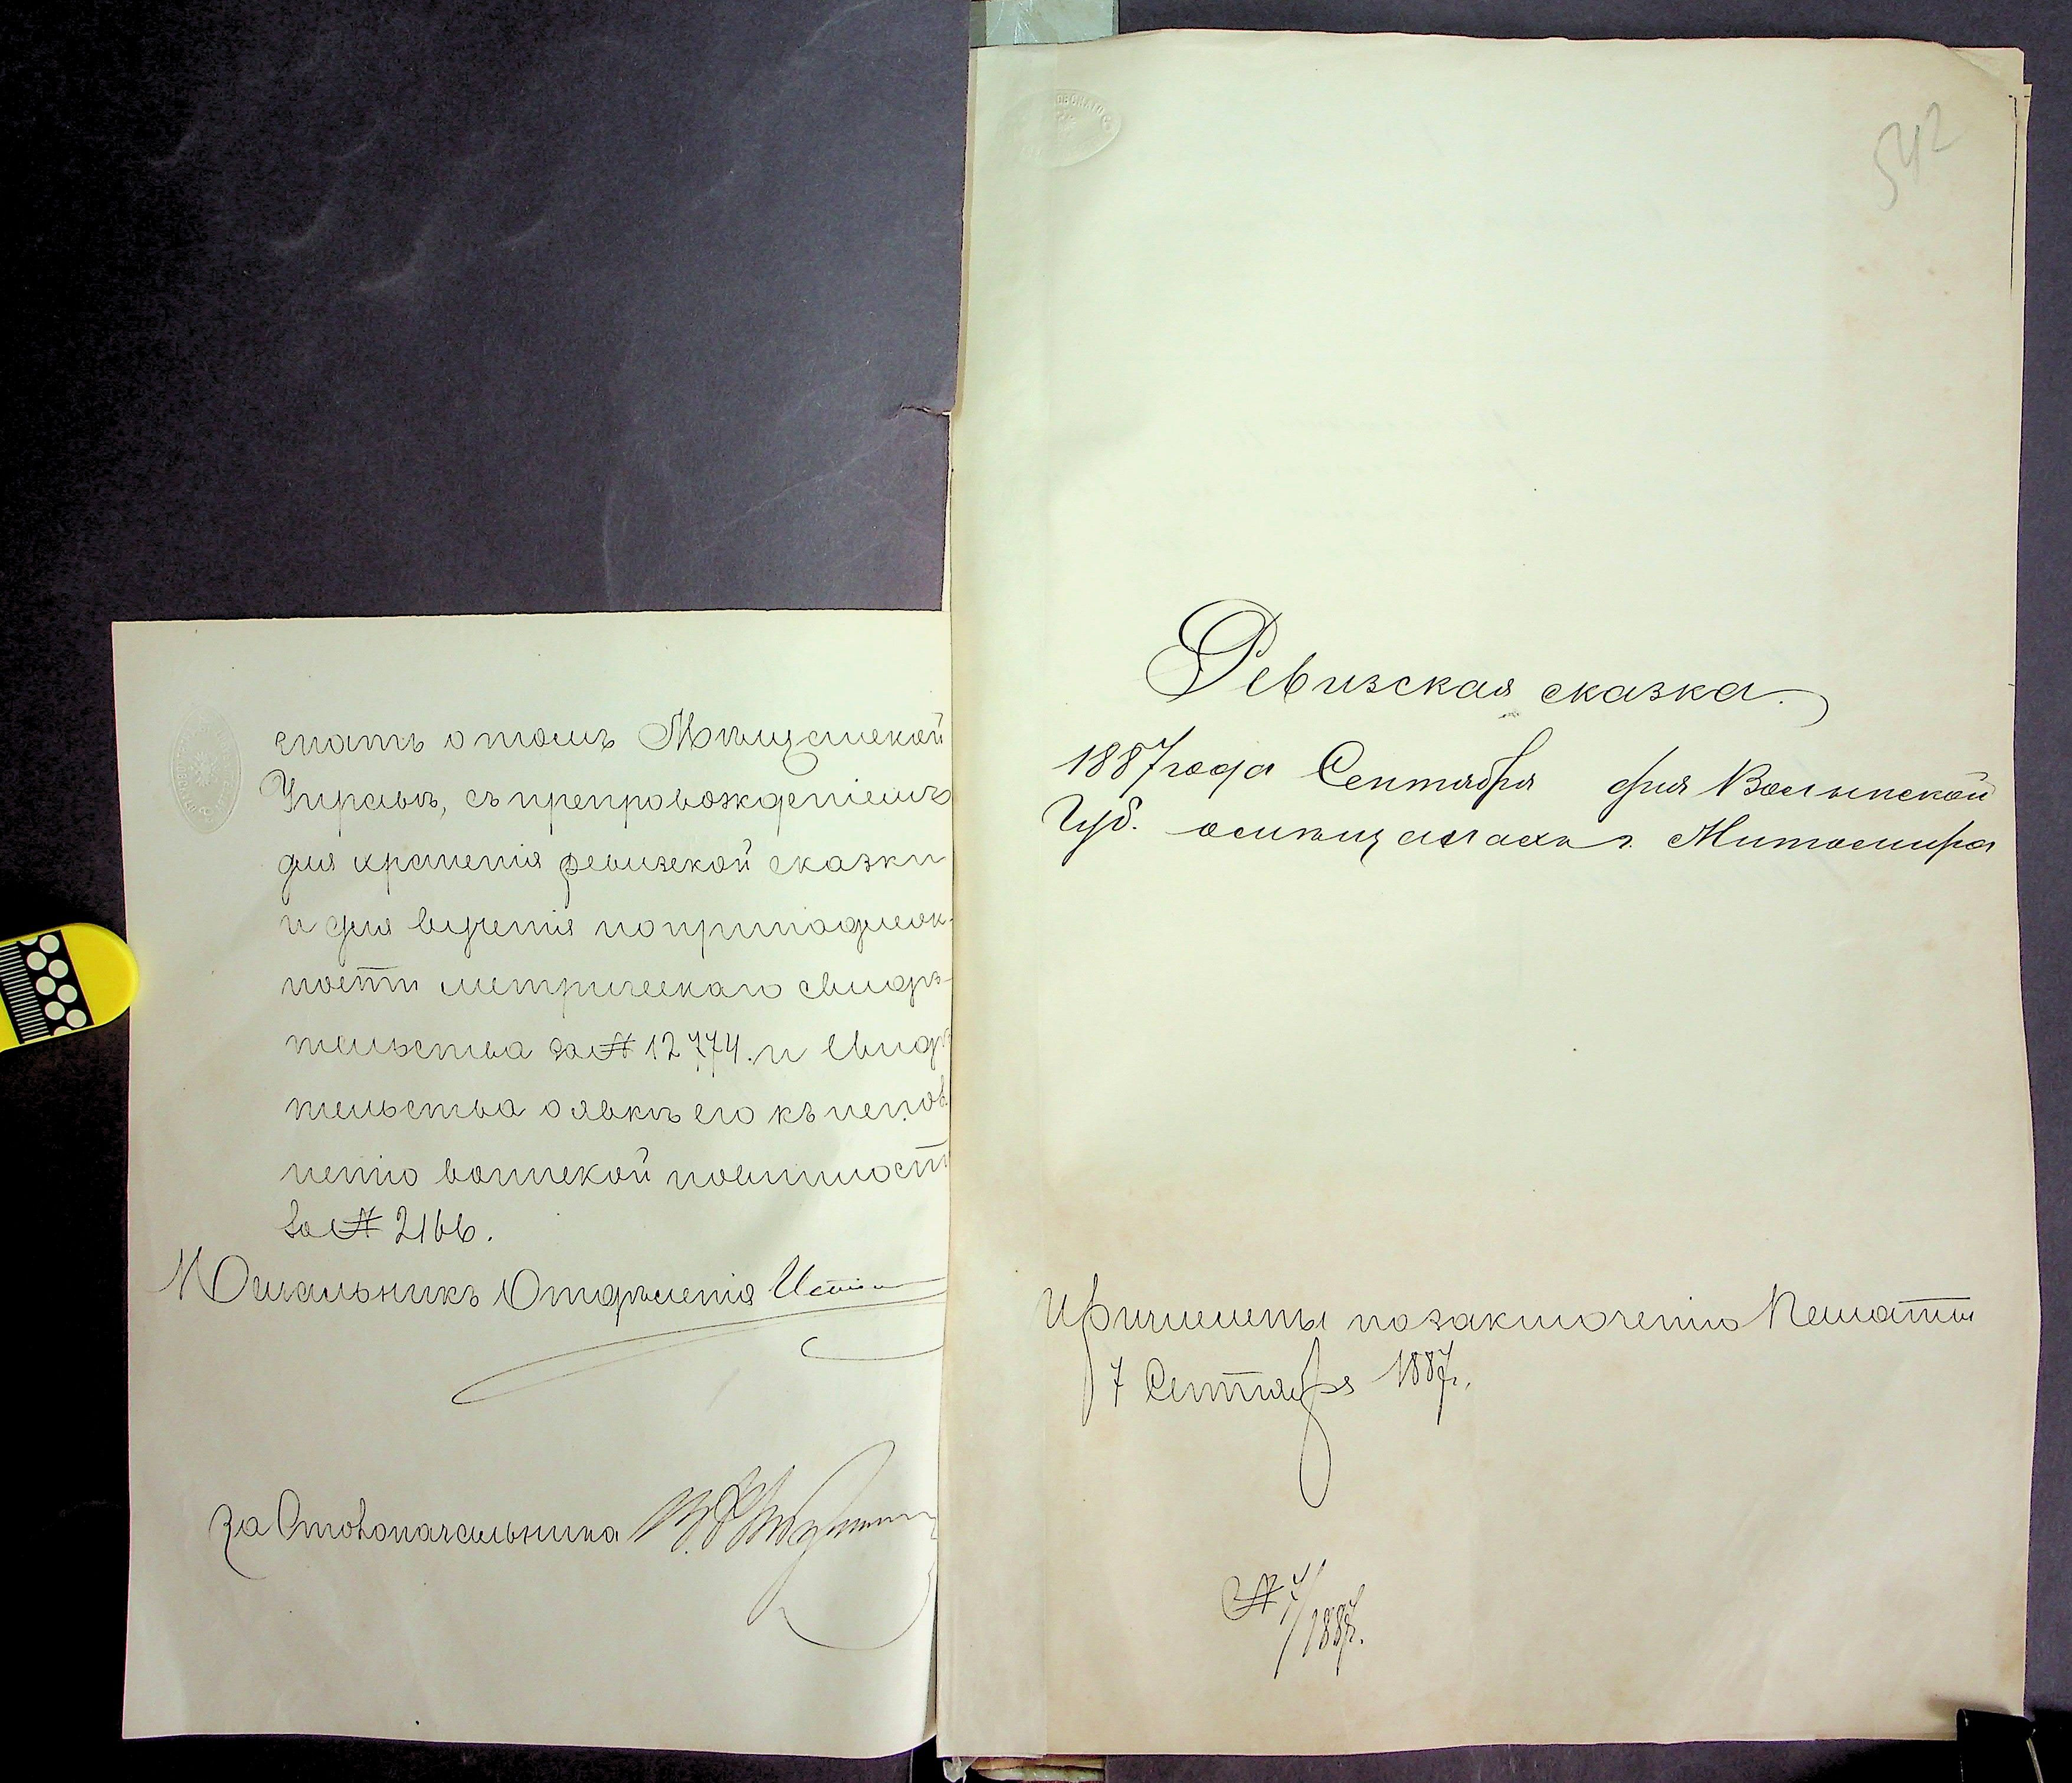 знать о томъ Мѣщанской
Управѣ, съ препровожденіемъ
для храненія ревизской сказки
и для врученія по принадлеж-
ности метрическаго свидѣ-
тельства за № 12774. и свидѣ
тельства о явкѣ его къ испол
ненію воинской повинност
за № 2166.
Начальникъ Отдѣленія
за Столоначальника
542
Ревизская сказка.
1887 года Сентября дня Волынской
Губ. о мѣщанахъ г. Житомира
Причислены по заключенію Палаты
7 Сентября 1887г.
№ 7/1887г.